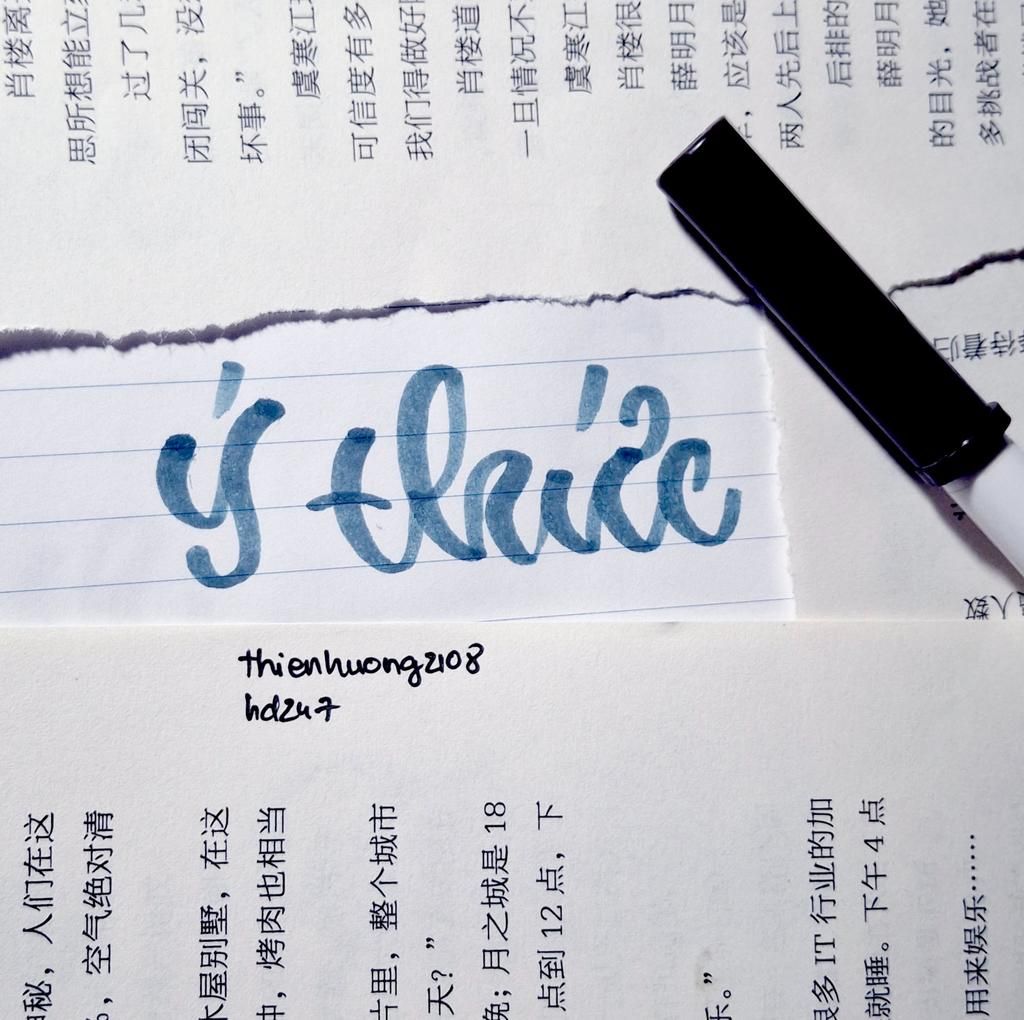 肖楼离
思所想能立
过了几
闭闯关，没
坏事。”
虞寒江
可信度有多
我们得做好
肖楼道
一旦情况不
虞寒江
肖楼很
薛明月
，应该是
两人先后上
后排的
薛明月
的目光，她
多挑战者在
待着归
人数
ý thức
thienhuong2108
hd247
秘，人们在这
，空气绝对清
木屋别墅，在这
，烤肉也相当
片里，整个城市
天？”
；月之城是 18
点到 12 点，下
乐。”
很多 IT 行业的加
就睡。下午 4 点
用来娱乐……